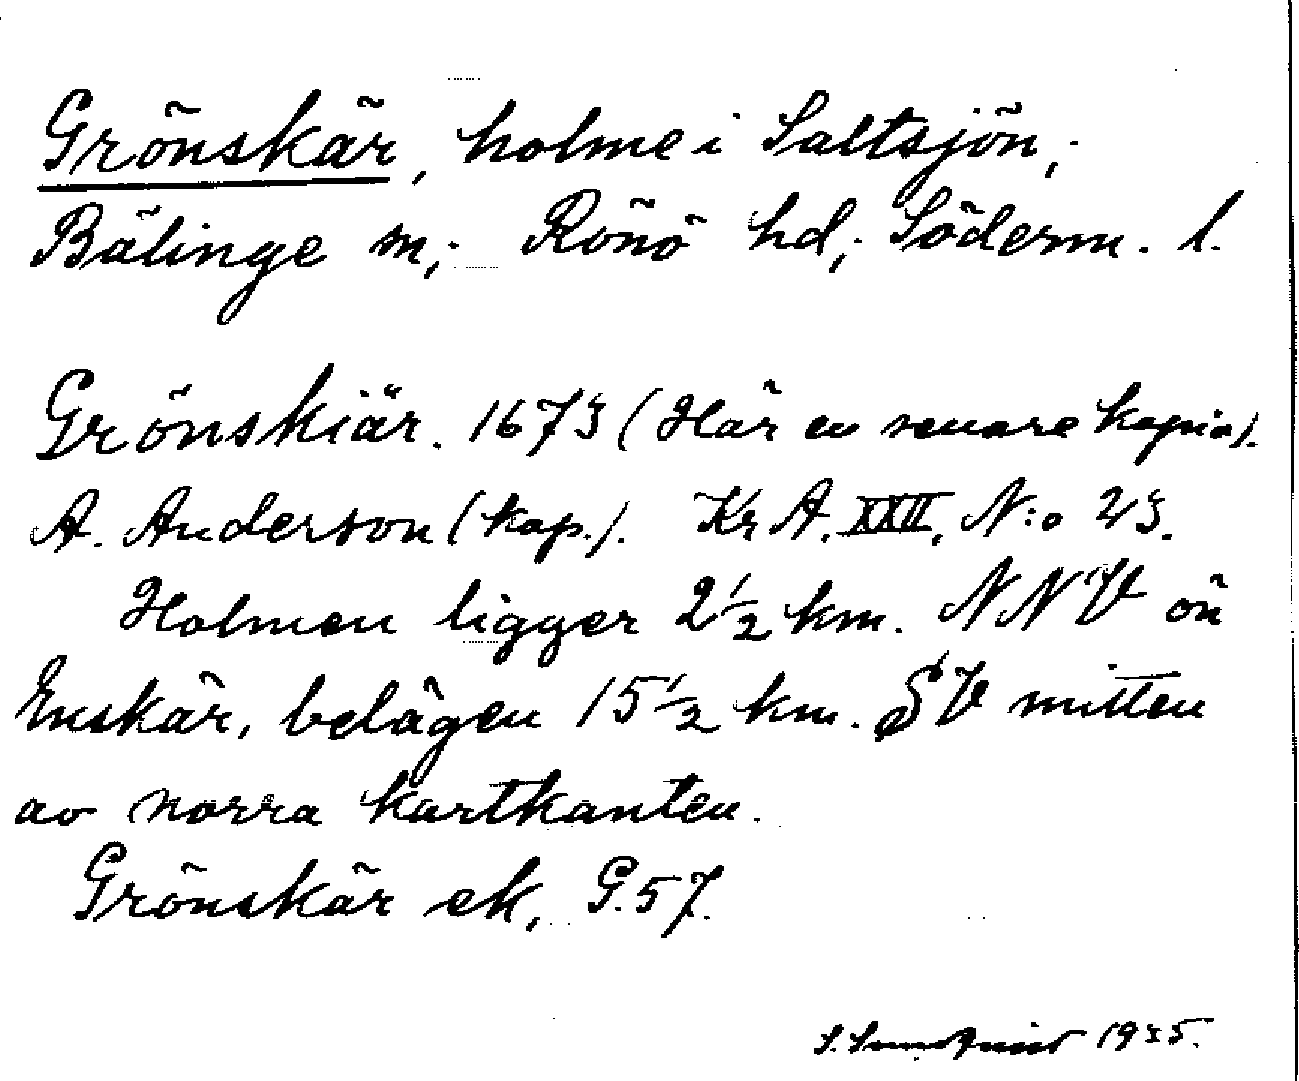 Grönskär, holme i Saltsjön,
Bälinge sn, Rönö hd, Söderm. l.
Grönskiär. 1673 (Här en senare kopia).
A. Anderson (kop.). Kr A. XXII, N:o 23.
Holmen ligger 2 1/2 km. NNV ön
Enskär, belägen 15 1/2 km. SV mitten
av norra kartkanten.
Grönskär ek, G.57.
S. 1935.